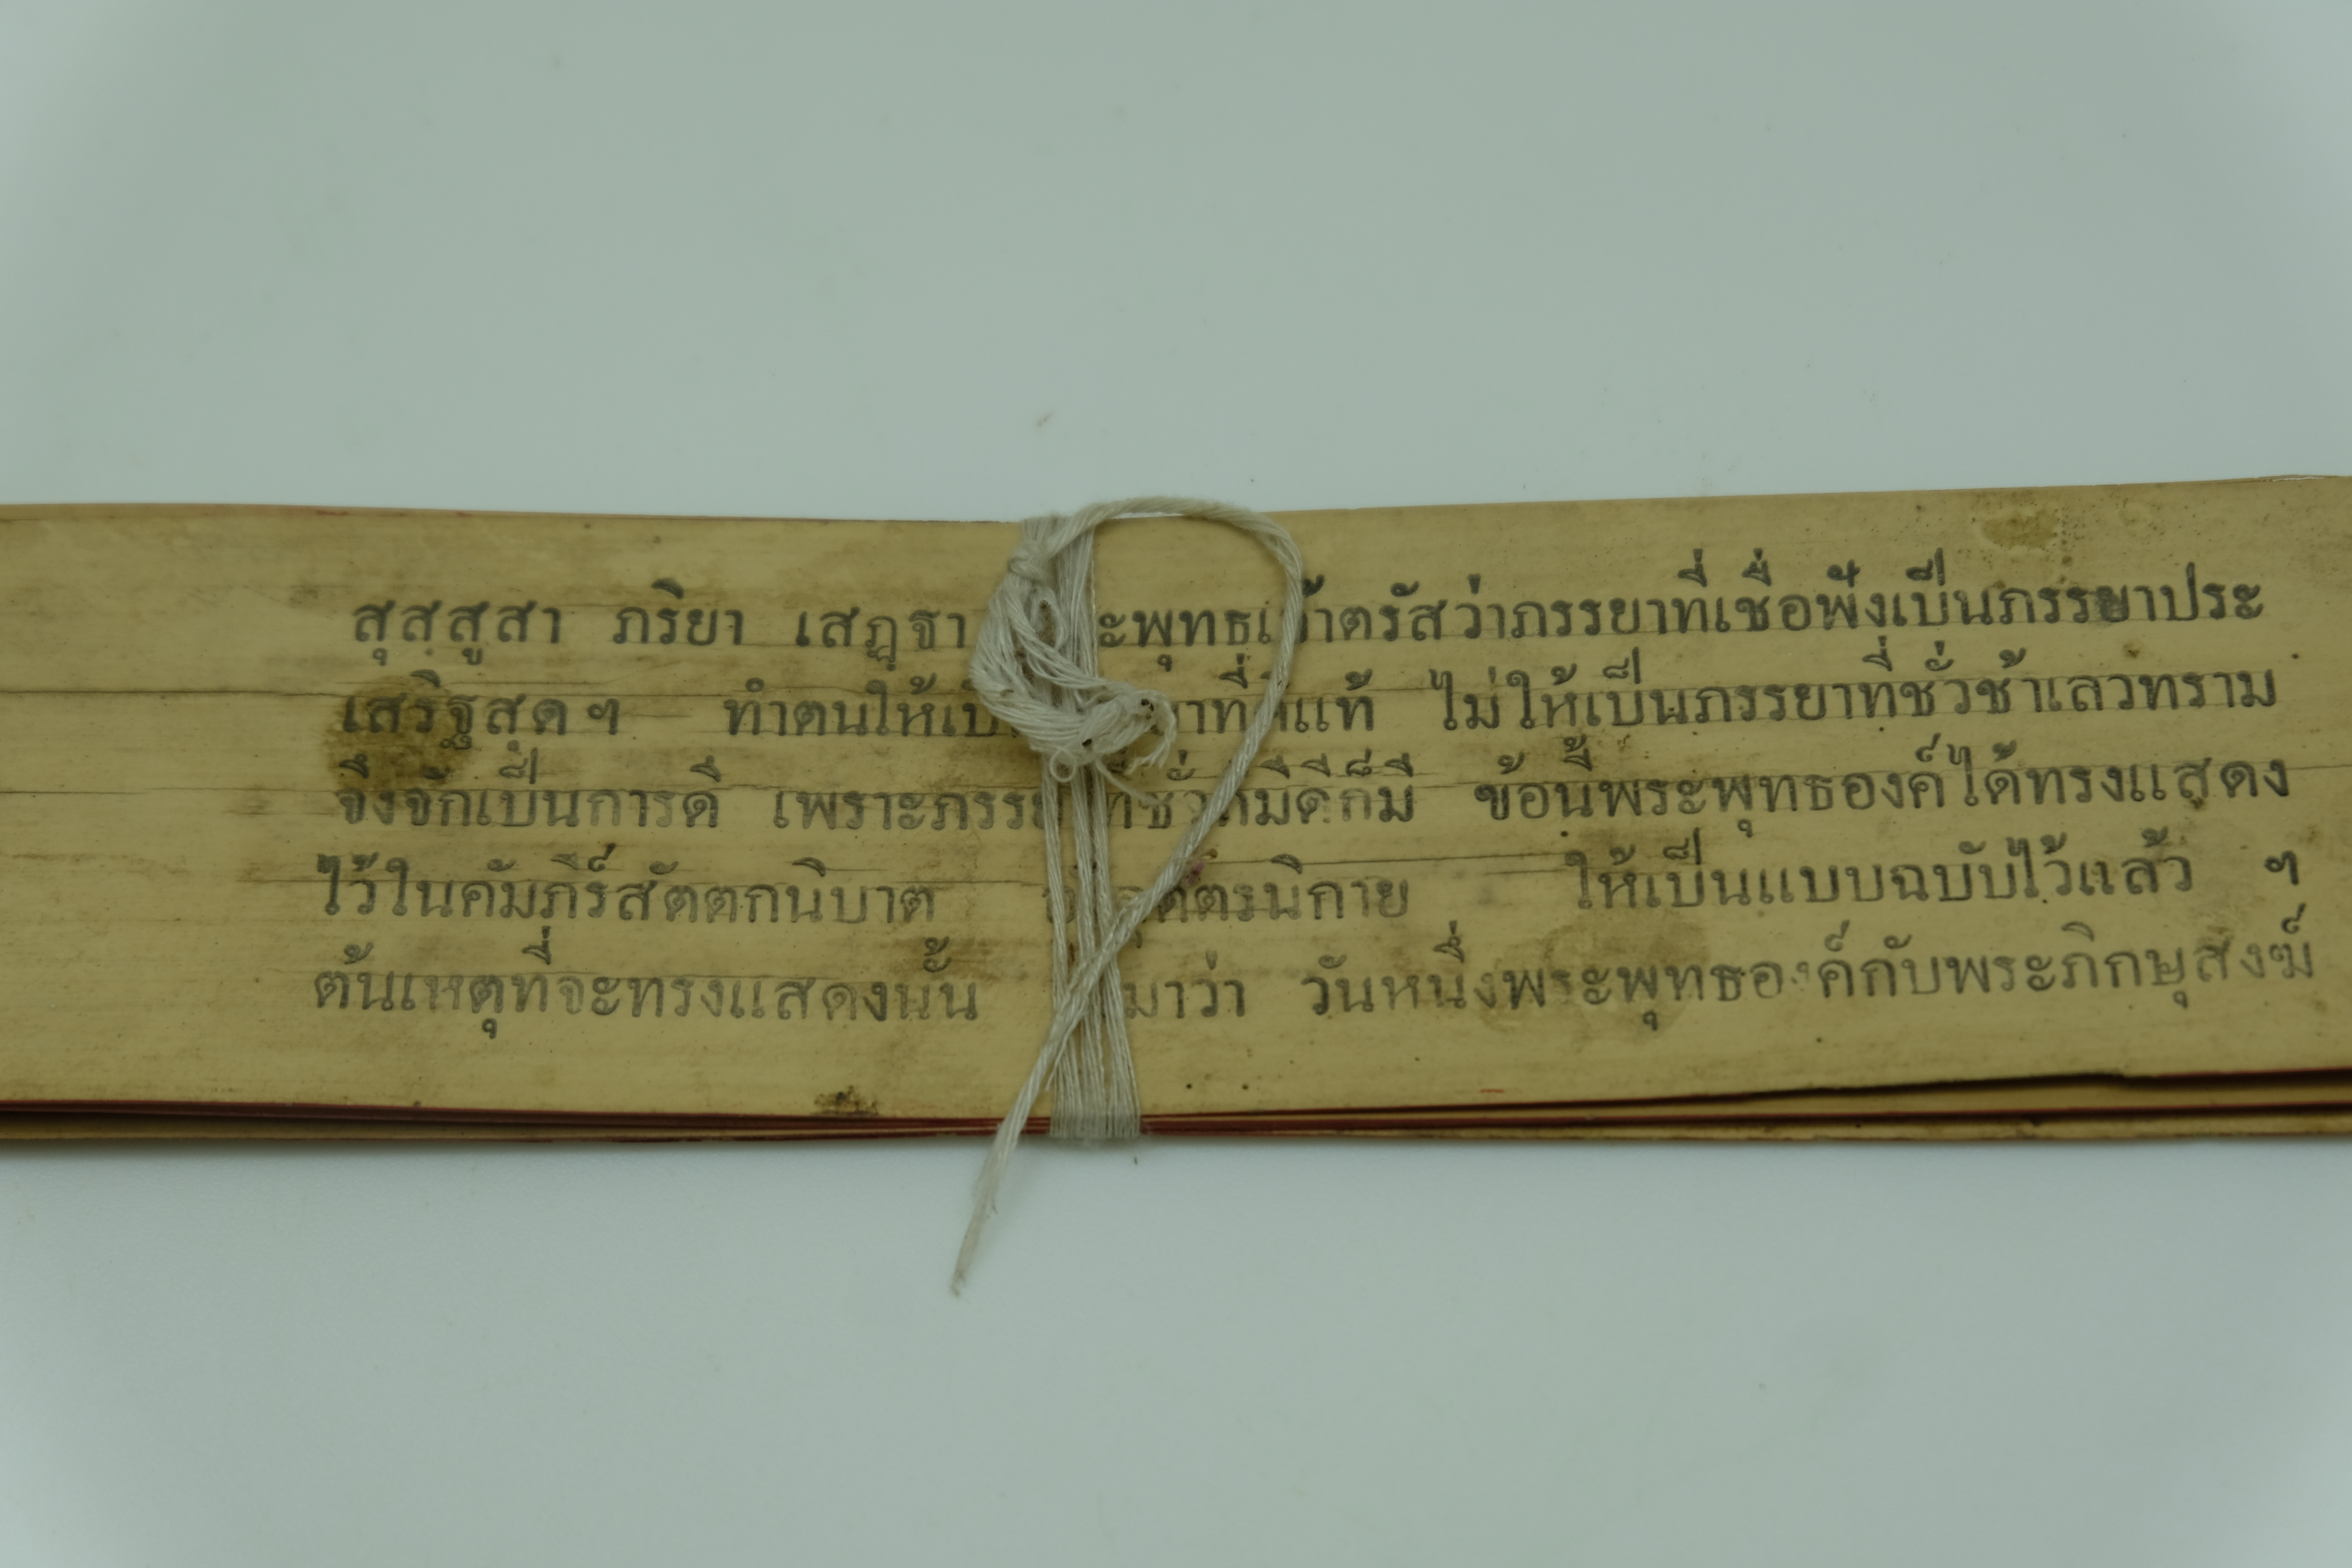 สุสฺสูสา ภริยา เสฏฺฐา ตรัสว่าภรรยาที่เชื่อฟังเป็นภรรยาประ
เสริฐสุด ฯ ทำตนให้ แท้ ไม่ให้เป็นภรรยาที่ชั่วช้าเลวทราม
จึงจักเป็นการดี เพราะ ก็มี ข้อนี้พระพุทธองค์ได้ทรงแสดง
ไว้ในคัมภีร์สัตตกนิบาต ให้เป็นแบบฉบับไว้แล้ว ฯ
ต้นเหตุที่จะทรงแสดงนั้น มาว่า วันหนึ่งพระพุทธองค์กับพระภิกษุสงฆ์